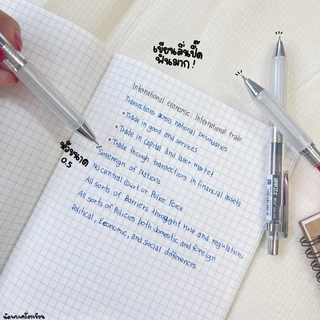 เขียนลื่นปื๊ด
ฟินมาก!
International economic : International trade
Transactions across national boundaries
• Trade in good and services
• Trade in capital and labor market
• Trade though transactions in financial assets
Sovereign of Nations
No central Court or Police Force
All sorts of Barriers throught rule and regulations
All sorts of Policies both domestic and foreign
Political, Economic, and social differences
หัวขนาด
0.5